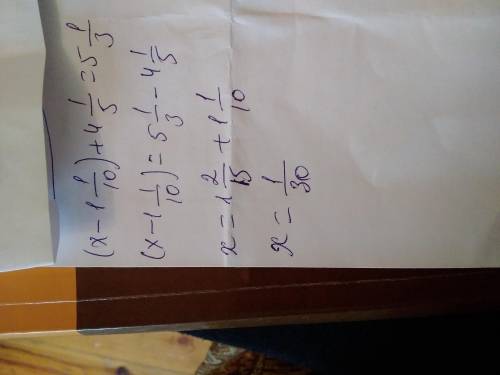 (x - 1 1/10) + 4 1/5 = 5 1/3
(x - 1 1/10) = 5 1/3 - 4 1/5
x = 1 2/15 + 1 1/10
x = 1/30